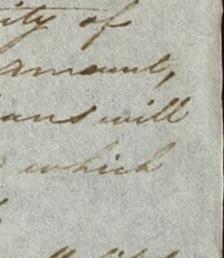 ity of
amount,
ans will
which